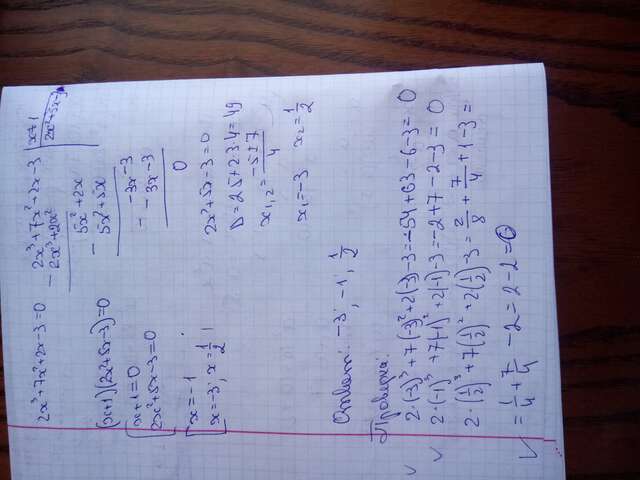 2x³+7x²+2x-3=0
(x+1)(2x²+5x-3)=0
[x+1=0
[2x²+5x-3=0
[x=-1
[x=-3; x=1/2
2x³+7x²+2x-3 | x+1
2x³+2x² | 2x²+5x-3
- 5x²+2x
5x²+5x
- -3x-3
-3x-3
0
2x²+5x-3=0
D=25+2·3·4=49
x₁,₂= -5±7/4
x₁=-3 x₂=1/2
Ответ: -3; -1; 1/2
Проверка:
2·(-3)³+7(-3)²+2(-3)-3=-54+63-6-3=0
2·(-1)³+7(-1)²+2(-1)-3=-2+7-2-3=0
2·(1/2)³+7(1/2)²+2(1/2)-3=2/8+7/4+1-3=
=1/4+7/4-2=2-2=0